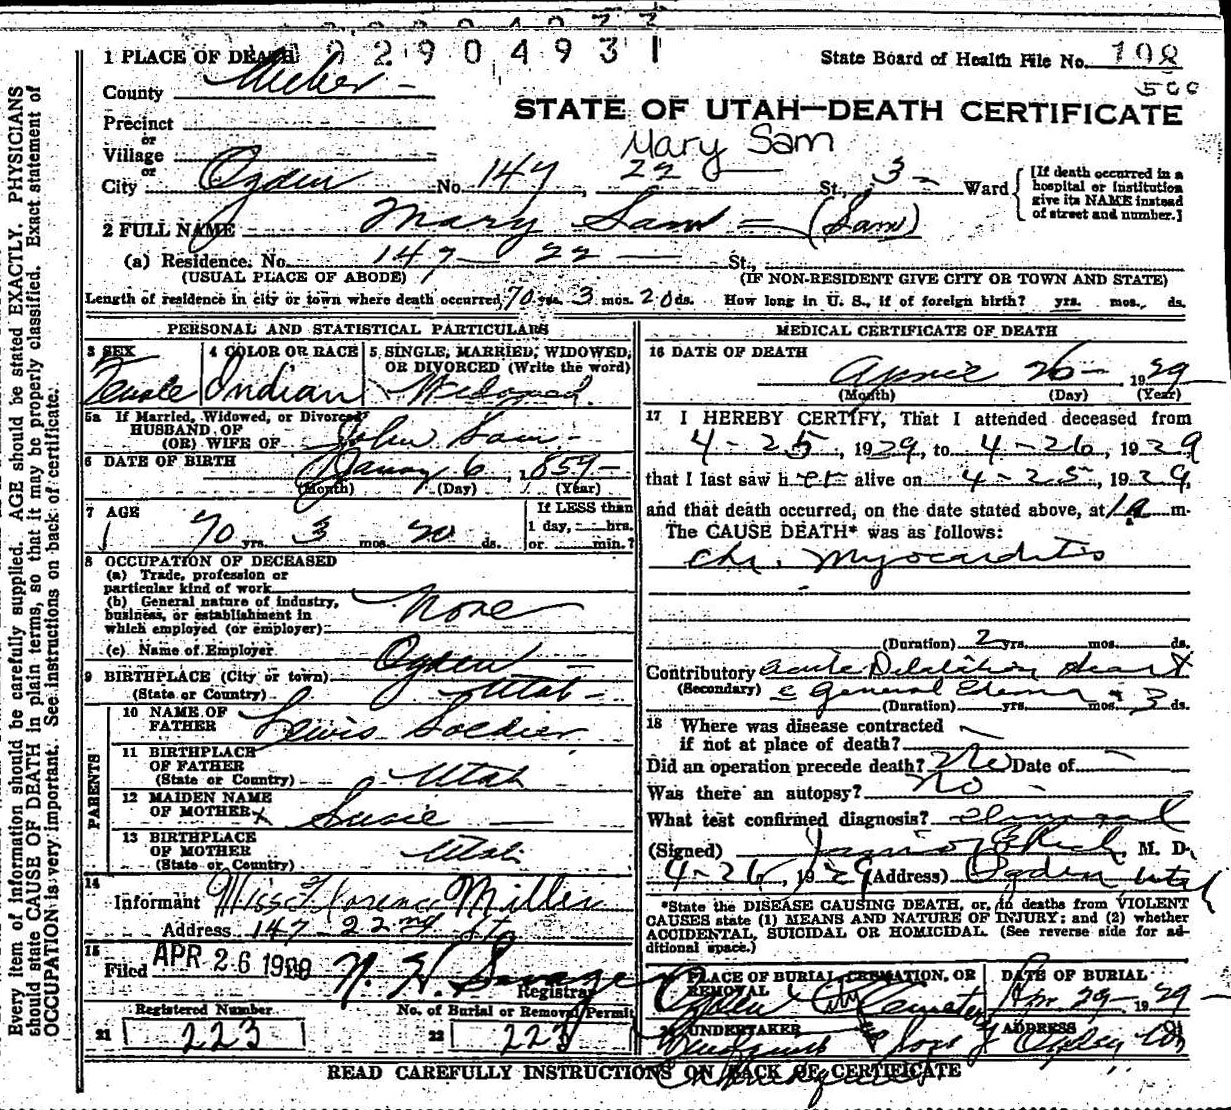 1 PLACE OF DEATH 2904931
State Board of Health File No. 198
500
County Weber
STATE OF UTAH—DEATH CERTIFICATE
Precinct
or
Village
Mary Sam
or
City Ogden No. 147, 22 St., 3 Ward
[If death occurred in a hospital or institution give its NAME instead of street and number.]
2 FULL NAME Mary Sam (Sam)
(a) Residence. No. 147 — 22 — St.,
(USUAL PLACE OF ABODE) (IF NON-RESIDENT GIVE CITY OR TOWN AND STATE)
Length of residence in city or town where death occurred, 70 yrs. 3 mos. 20 ds. How long in U. S., if of foreign birth? yrs. mos. ds.
PERSONAL AND STATISTICAL PARTICULARS
3 SEX Female
4 COLOR OR RACE Indian
5 SINGLE, MARRIED, WIDOWED, OR DIVORCED (Write the word) Widowed.
5a If Married, Widowed, or Divorced
HUSBAND OF
(OR) WIFE OF John Sam
6 DATE OF BIRTH 6, 1859
(Month) (Day) (Year)
7 AGE 70 yrs. 3 mos. 20 ds.
If LESS than 1 day, hrs. or min.?
8 OCCUPATION OF DECEASED
(a) Trade, profession or particular kind of work
(b) General nature of industry, business, or establishment in which employed (or employer) None
(c) Name of Employer
9 BIRTHPLACE (City or town) Ogden
(State or Country) Utah
PARENTS
10 NAME OF FATHER Lewis Soldier
11 BIRTHPLACE OF FATHER (State or Country) Utah
12 MAIDEN NAME OF MOTHER Susie
13 BIRTHPLACE OF MOTHER (State or Country) Utah
14
Informant Miss Florence Miller
Address 147 - 22nd St
15
Filed APR 26 1929 N. H. Savage
Registrar
Registered Number No. of Burial or Removal Permit
21 223 22 223
MEDICAL CERTIFICATE OF DEATH
16 DATE OF DEATH
April 26 1929
(Month) (Day) (Year)
17 I HEREBY CERTIFY, That I attended deceased from
4 - 25, 1929, to 4 - 26, 1929
that I last saw her alive on 4 - 25, 1929,
and that death occurred, on the date stated above, at 1 a m.
The CAUSE DEATH* was as follows:
Chr. Myocarditis
(Duration) 2 yrs. mos. ds.
Contributory Acute Dilatation heart
(Secondary) c General Edema
(Duration) yrs. mos. 3 ds.
18 Where was disease contracted
if not at place of death?
Did an operation precede death? No Date of
Was there an autopsy? No
What test confirmed diagnosis?
(Signed) Rich, M. D.
4-26, 1929 (Address) Ogden Utah
*State the DISEASE CAUSING DEATH, or, in deaths from VIOLENT
CAUSES state (1) MEANS AND NATURE OF INJURY; and (2) whether
ACCIDENTAL, SUICIDAL OR HOMICIDAL. (See reverse side for ad-
ditional space.)
PLACE OF BURIAL, CREMATION, OR REMOVAL Ogden City Cemetery
DATE OF BURIAL Apr. 29 1929
UNDERTAKER & Sons
ADDRESS Ogden
READ CAREFULLY INSTRUCTIONS ON BACK OF CERTIFICATE
Every item of information should be carefully supplied. AGE should be stated EXACTLY. PHYSICIANS
should state CAUSE OF DEATH in plain terms, so that it may be properly classified. Exact statement of
OCCUPATION is very important. See instructions on back of certificate.